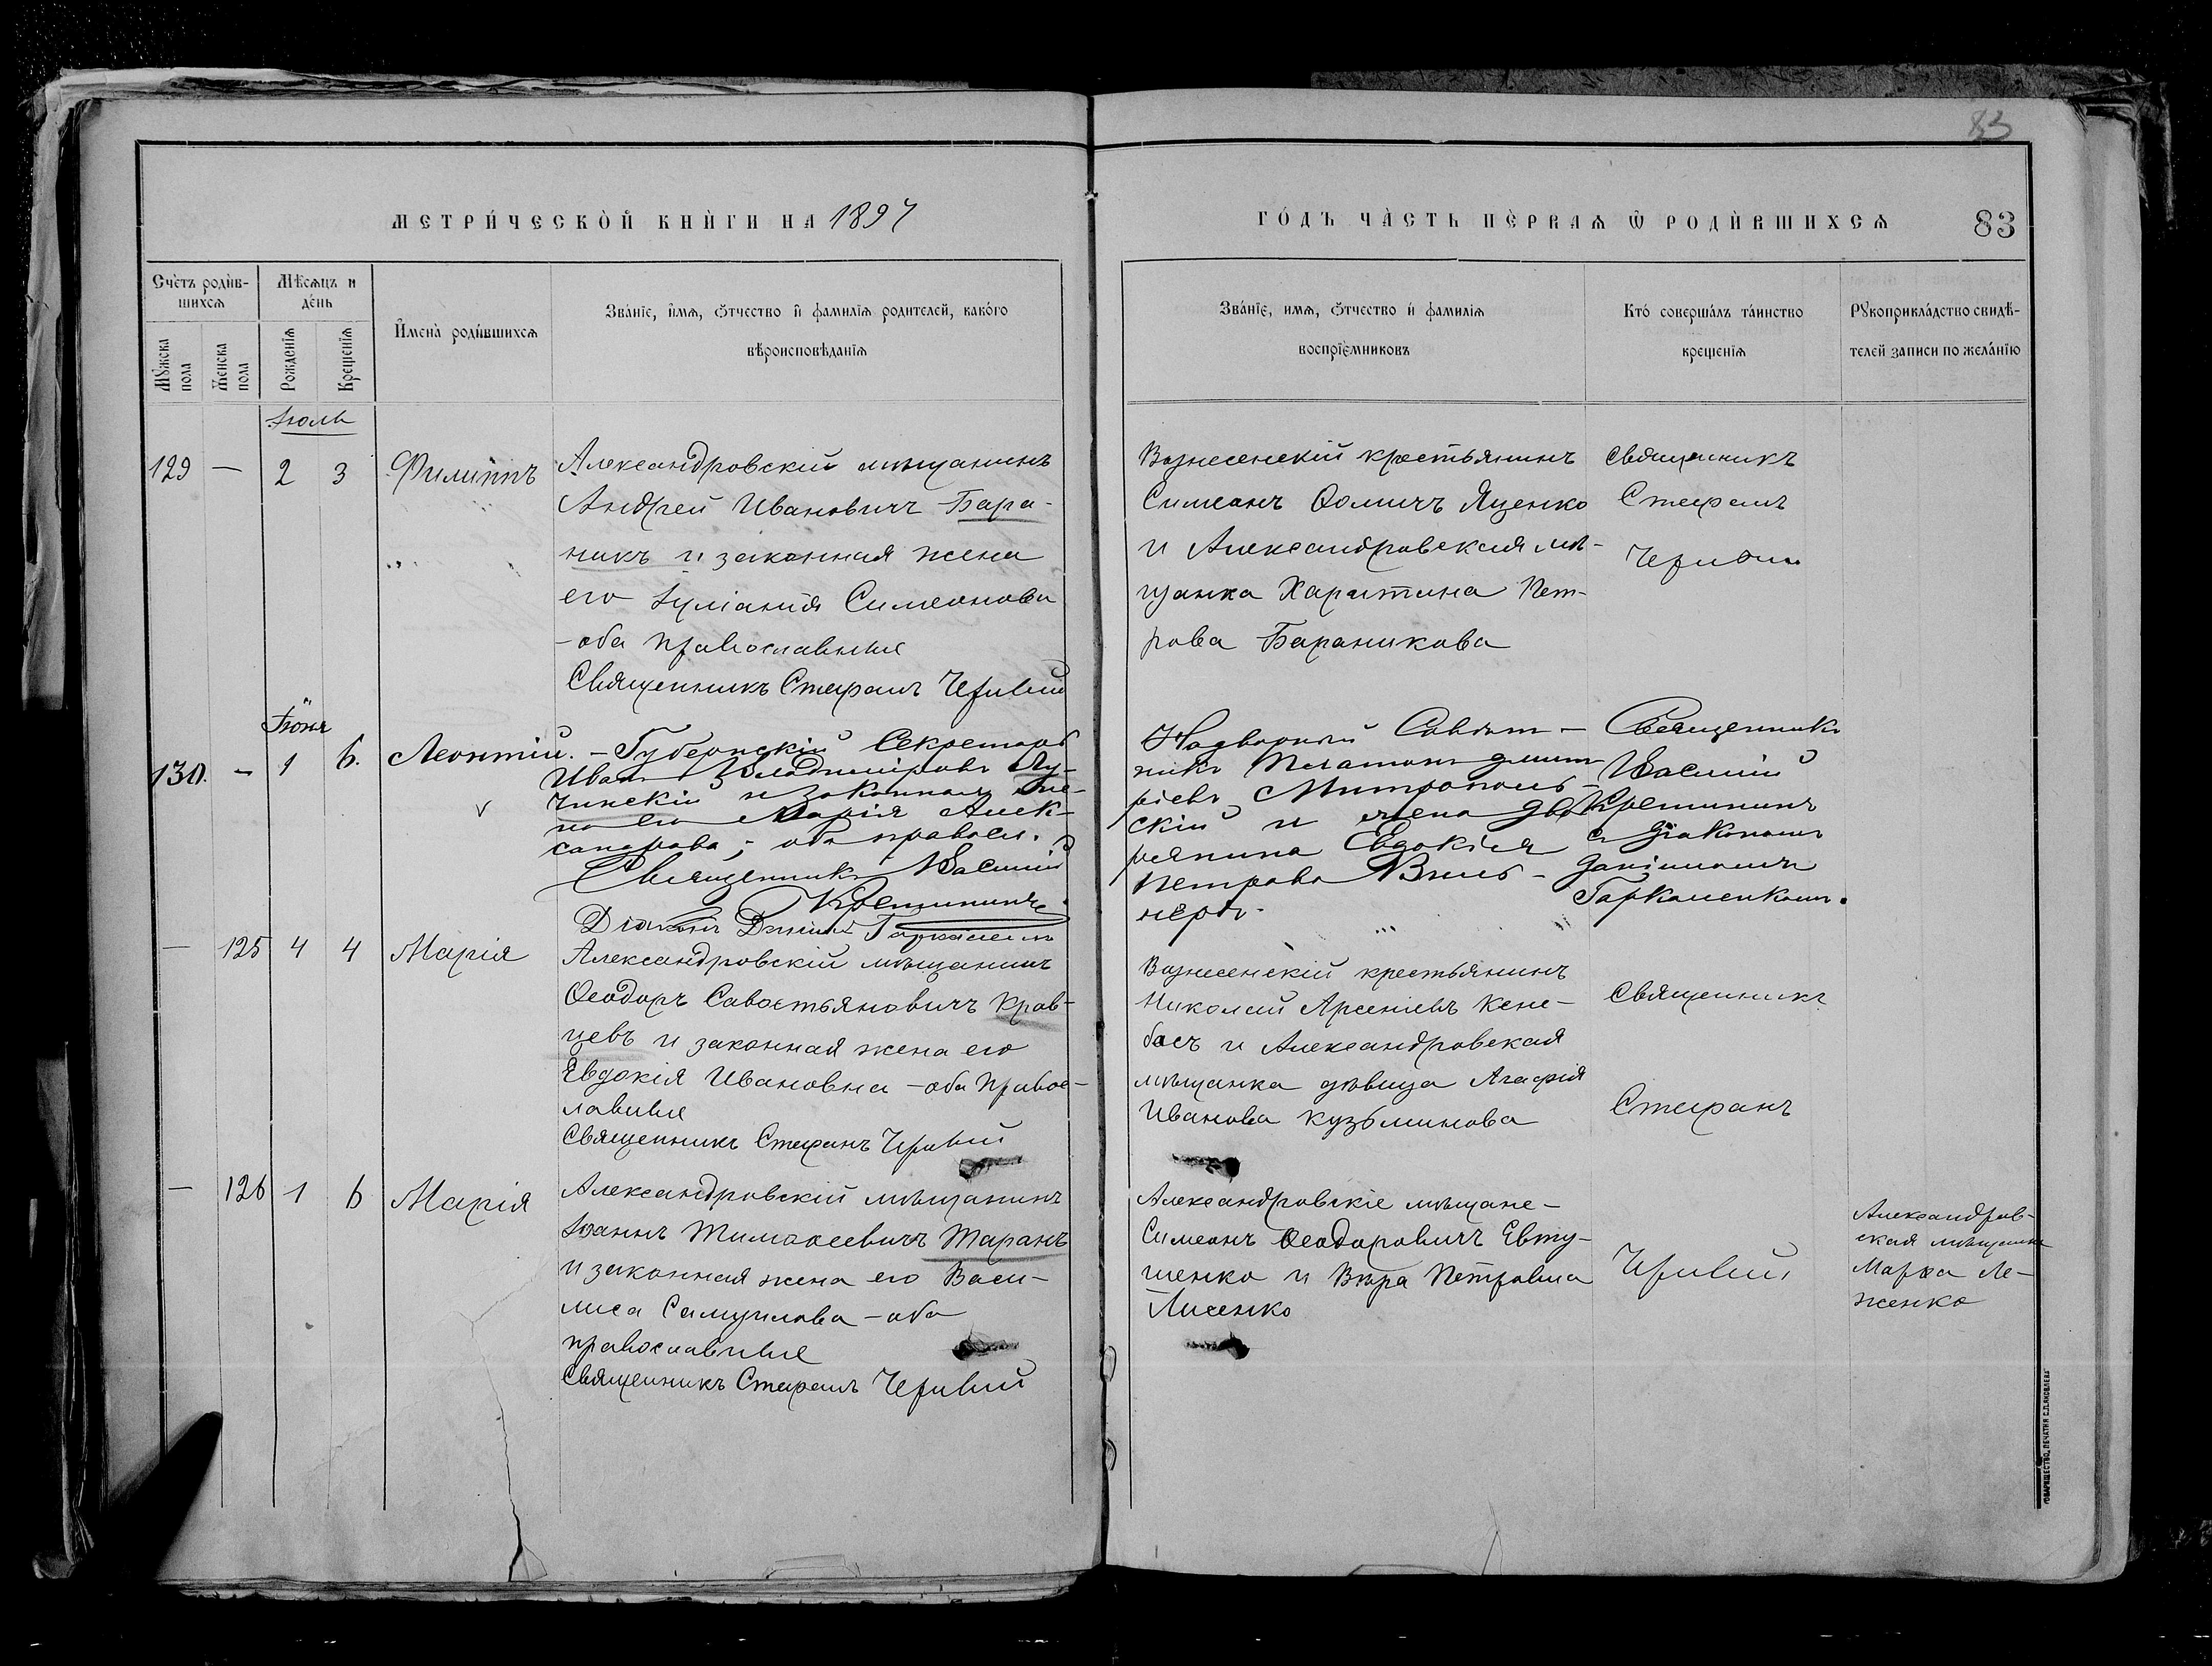 83
МЕТРИ́ЧЕСКО̀Й КНЍГИ НА 1897
ГО́ДЪ ЧА̀СТЬ ПЀРВАѦ Ѿ РОДЍВШИХСѦ 83
Сче́тъ роди̇̀в-
шихсѧ
Мѣ́сѧцъ и
де́нь
Мꙋ́жска
пола
Же́нска
пола
Рожде́нїѧ
Креще́нїѧ
И҆мена̀ роди́вшихсѧ
Зва́нїе, и҆́мѧ, ѻ҆́тчество и҆ фами́лїѧ роди́телей, како́го
вѣроисповѣ́данїѧ
Зва́нїе, имѧ, ѻ҆́тчество и҆ фами́лїѧ
воспрїе́мниковъ
Кто́ соверша́лъ та́инство
креще́нїѧ
Рꙋкоприкла́дство свидѣ́-
телей записи по жела́нїю
Іюль
129 — 2 3 Филиппъ
Александровскій мѣщанинъ
Андрей Ивановичъ Бара-
никъ и законная жена
его Іуліанія Симеонова
- оба православные
Священникъ Стефанъ Чернвий
Вознесенскій крестьянинъ
Симеонъ Ѳомичъ Яценко
и Александровская мѣ-
щанка Харитина Пет-
рова Бараникова
Священникъ
Стефанъ
Іюня
130. — 1 6. Леонтій.
- Губернскій Секретарь
Иванъ Владиміровъ Лу-
чинскій и законная же-
на его Марія Алек-
сандрова; оба правосл.
Священникъ Василій
Кремининъ
Діаконъ Даніилъ
Надворный Совѣт-
никъ Платонъ Дмит-
ріевъ Митрополь-
скій и жена дво-
рянина Евдокія
Петрова Виль-
неръ.
Священникъ
Василій
Кремининъ
съ Діакономъ
Даніиломъ
Гаркаленкомъ.
— 125 4 4 Марія
Александровскій мѣщанинъ
Ѳеодоръ Савостьяновичъ Крав-
цевъ и законная жена его
Евдокія Ивановна - оба право-
лавные
Священникъ Стефанъ
Вознесенскій крестьянинъ
Николай Арсеніевъ Кене-
басъ и Александровская
мѣщанка дѣвица Агафія
Иванова Кузьминова
Священникъ
Стефанъ
— 126 1 6 Марія
Александровскій мѣщанинъ
Іоаннъ Тимоѳеевичъ Таранъ
и законная жена его Васи-
лиса Самуилова - оба
православные
Священникъ Стефанъ
Александровскіе мѣщане -
Симеонъ Ѳеодоровичъ Евту-
шенко и Вѣра Петровна
Лисенко
Александров-
ская мѣщанка
Марѳа Ле-
женко
ТОВАРИЩЕСТВО „ПЕЧАТНЯ С.П. ЯКОВЛЕВА“